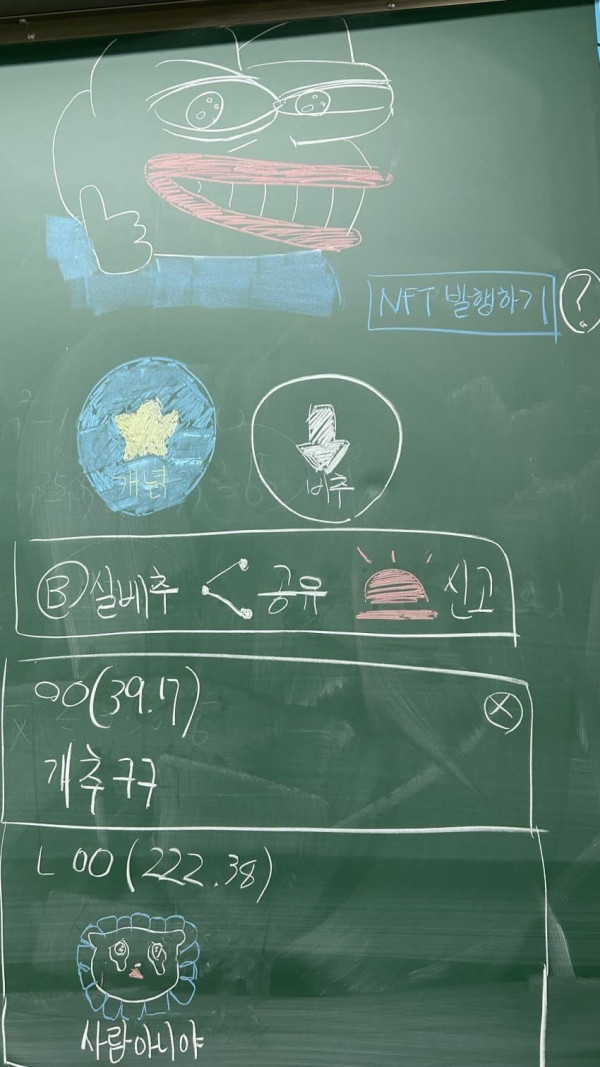 NFT 발행하기 ?
개념 비추
B 실베추 공유 신고
ㅇㅇ(39.17) X
개추 구구
ㄴ ㅇㅇ(222.38)
사람아니야